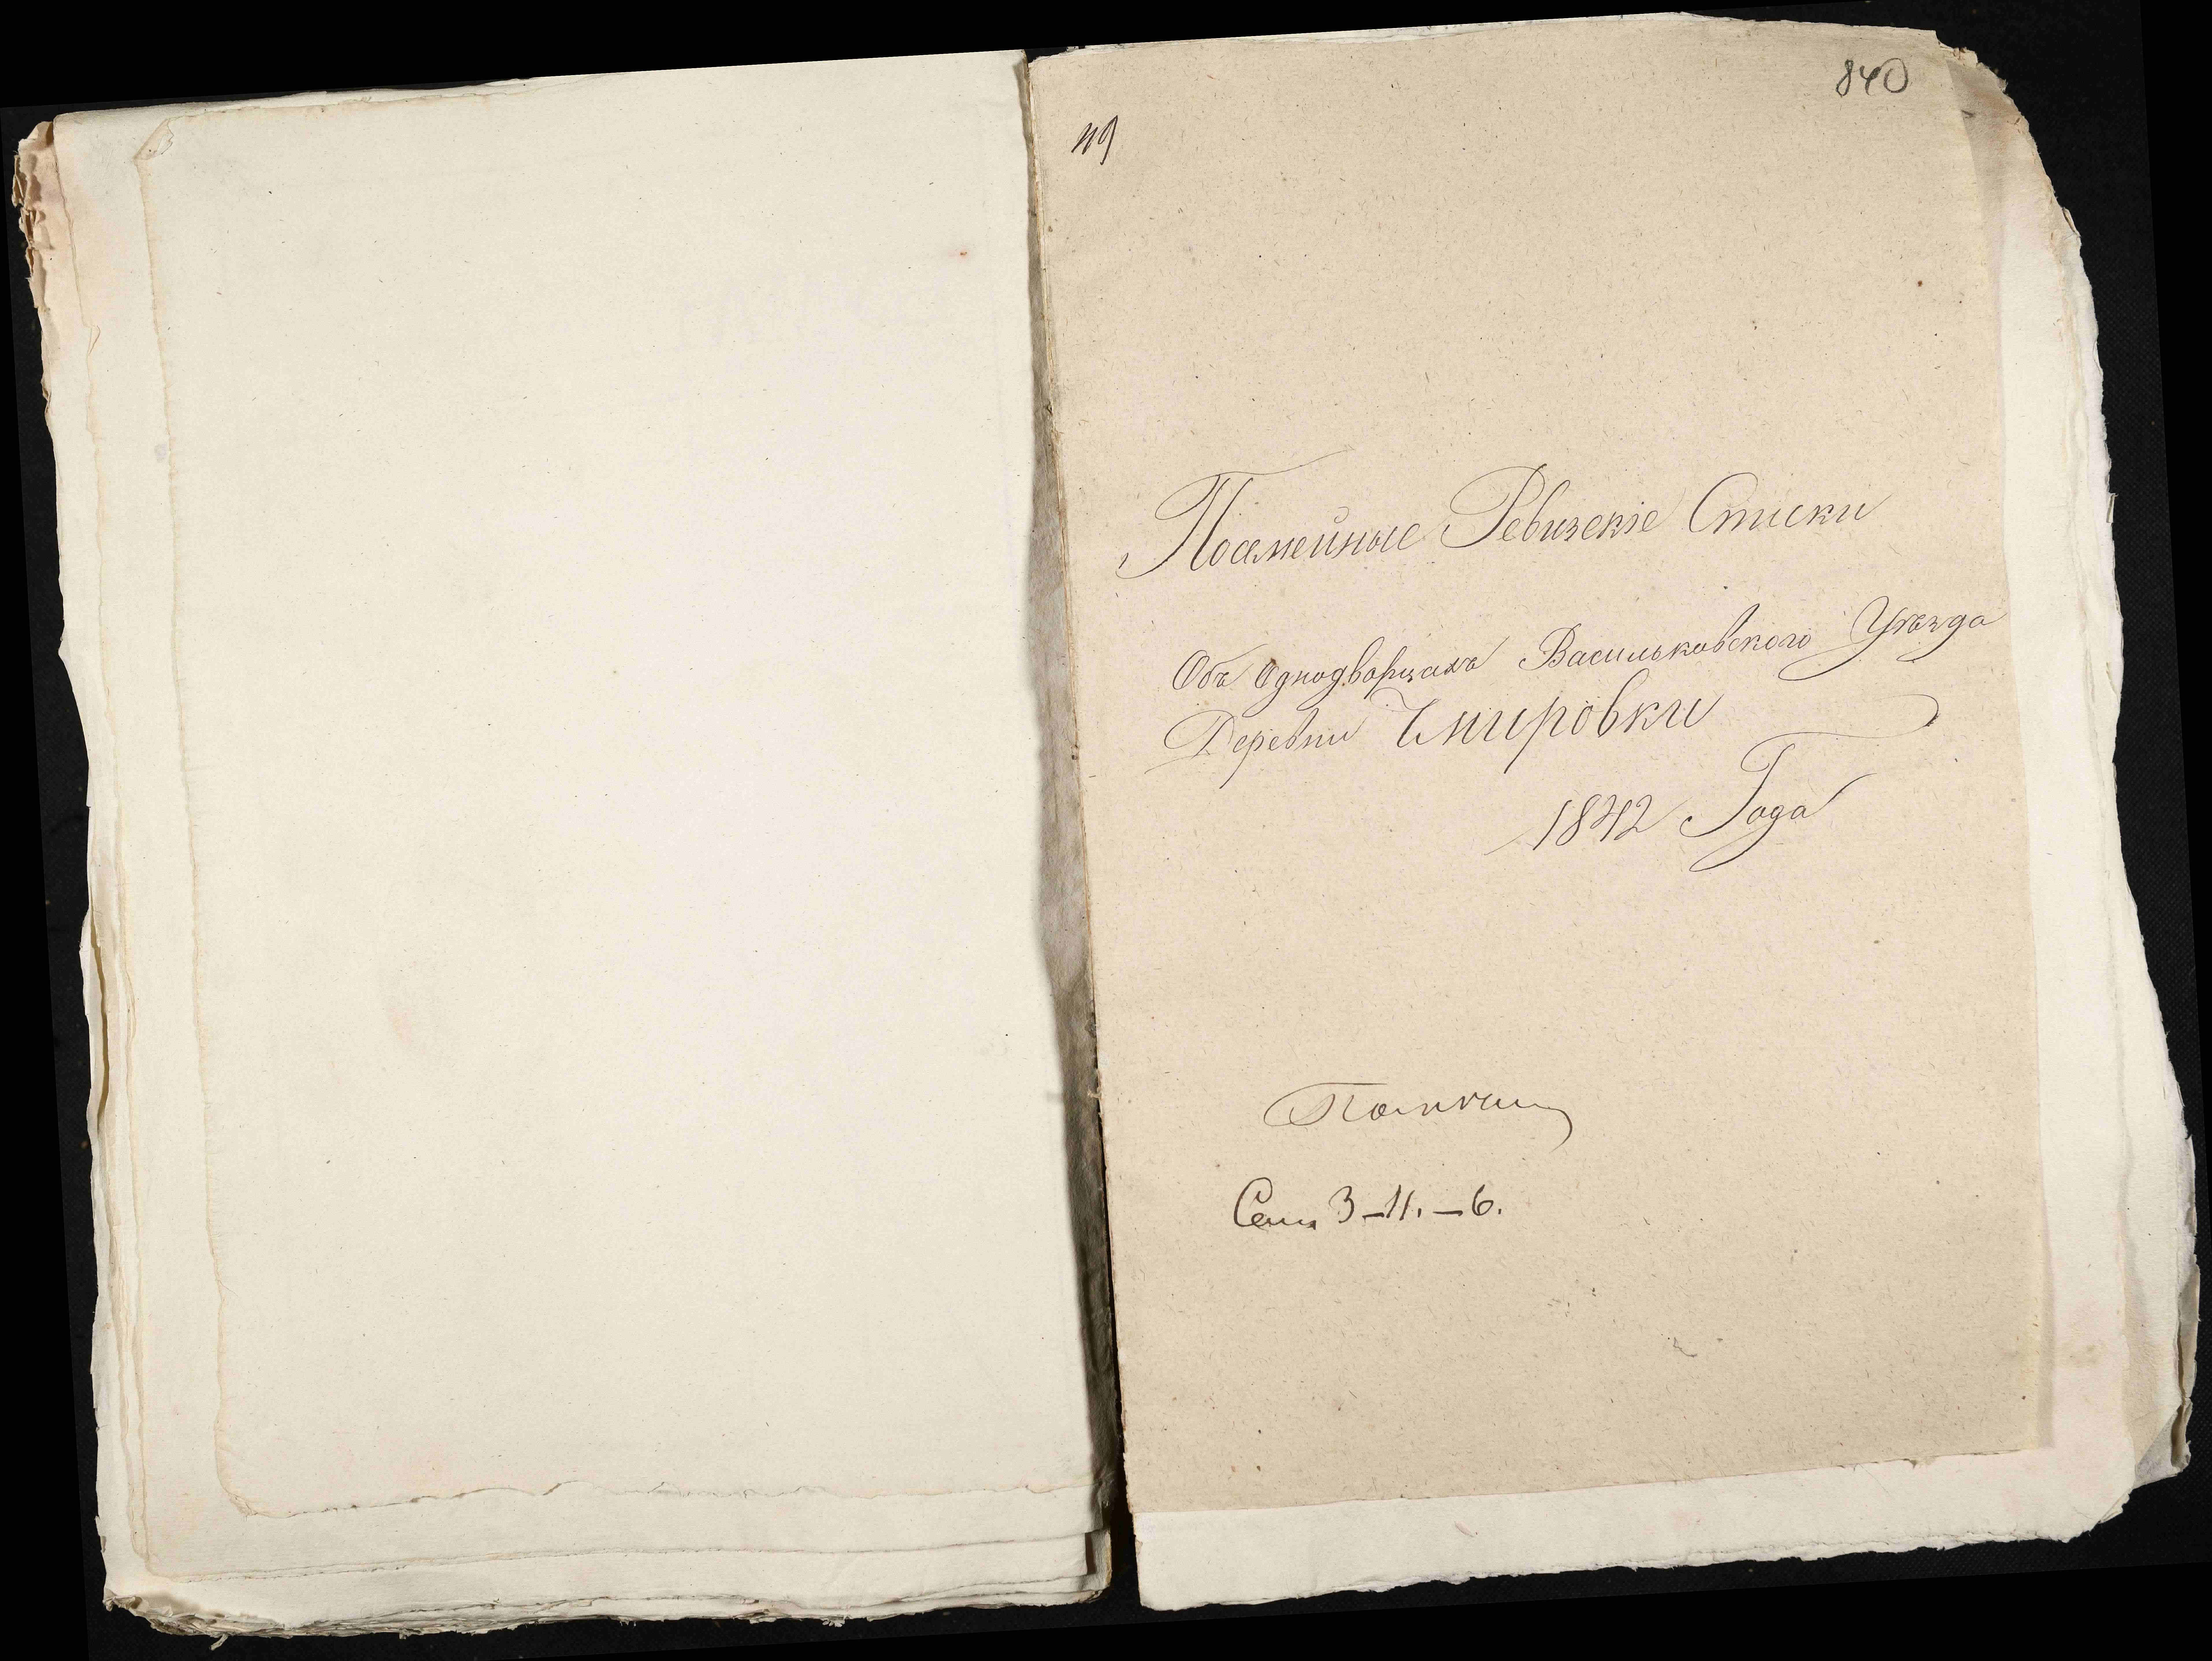 840
49
Посемейные Ревизскіе Списки
Объ Однодворцахъ Васильковского Уѣзда
Деревни Чмировки
1842 Года
Сем. 3–11.–6.